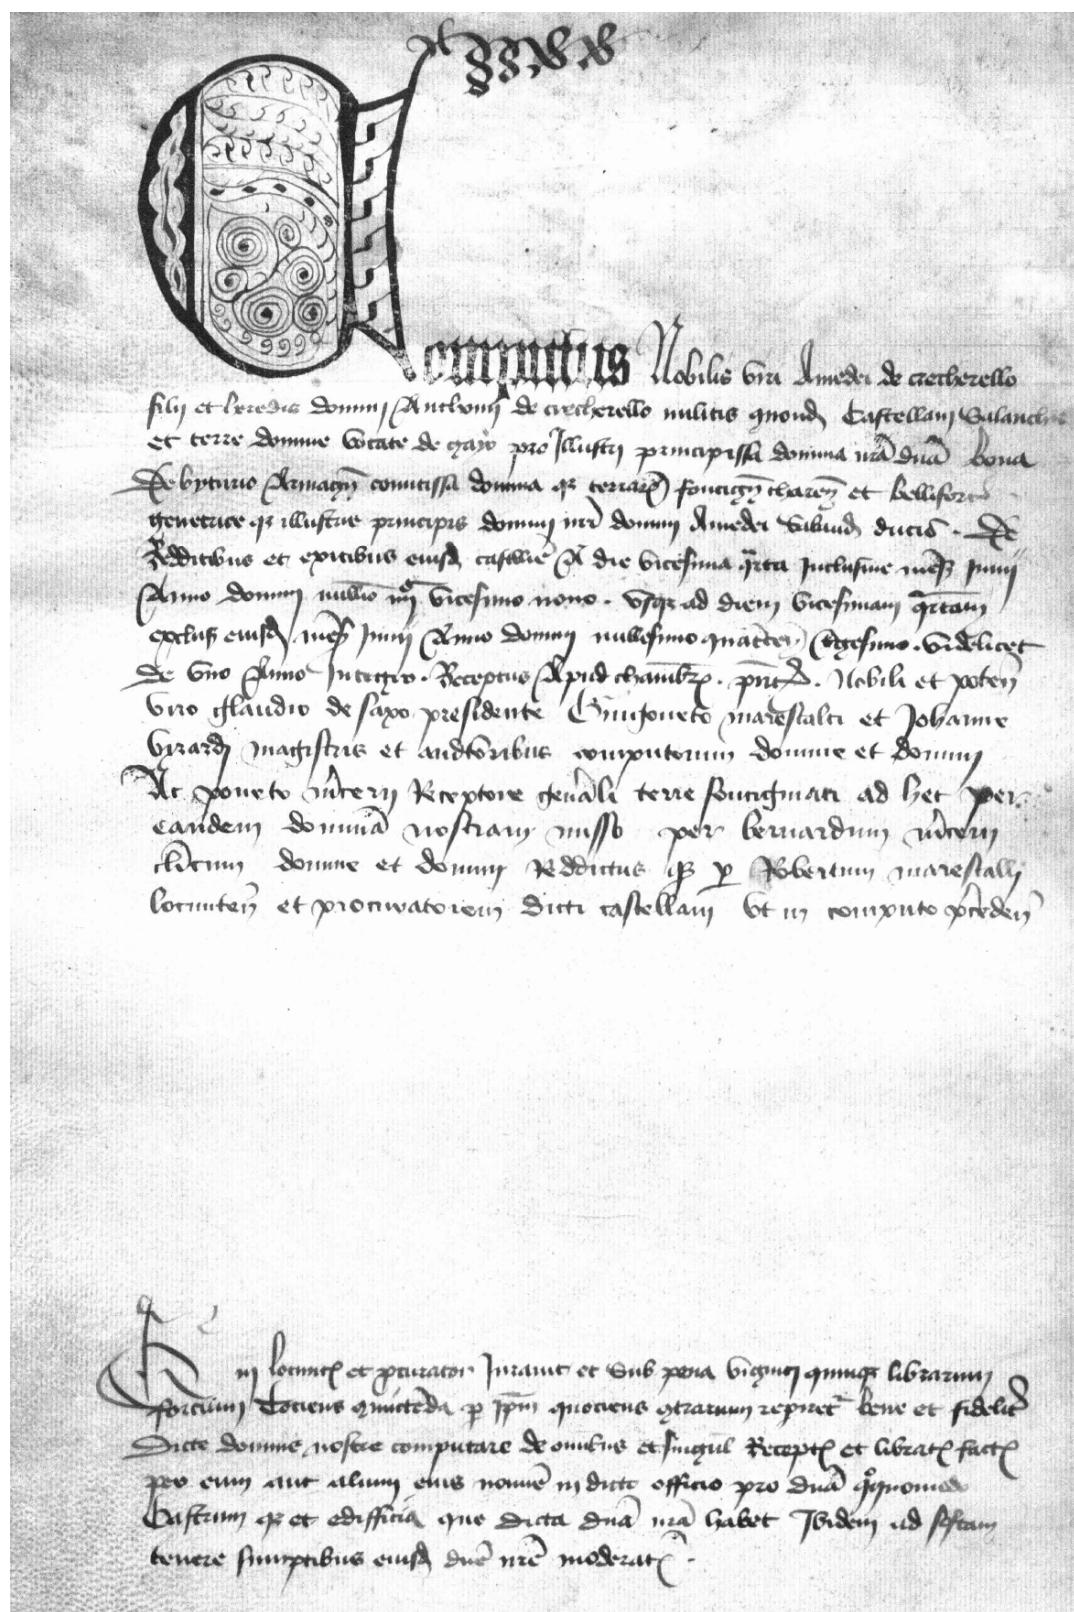 Computus Nobilis viri Amedei de crecherello
filij et heredis domini Anthonij de crecherello militis quond Castellani Salanch
et terre domine vocate de gayo pro Illustri principissa domina nrā duā bona
De byturio Armagn comitissa domina qz terrarum foucign et bellifort
genetrice qz illustris principis domini nri domini Amedei Sabaud ducis. De
Redditibus et exitibus eiusd castllie A die vicesima qrta Inclusiue mens Junij
Anno domini millio iiij vicesimo nono. vsqz ad diem vicesimam qrtam
exclus eiusd mens Junij Anno domini millesimo quatercen tgesimo. videlicet
De vno Anno Integro. Receptus Apud chambr. pntd. Nobili et poten
viro glaudio de saxo presidente Guigoneto marescalci et Johanne
vyrardi magistris et auditoribus computorum domine et domini
Ac poneto mcerij Receptore genali terre foucigniaci ad hec per
eandem dominā nostram misso per bernardum mcerij
clicum domine et domini Redditus qz p Robertum marescalli
locumten et procuratorem dicti castellani vt in computo pceden
Qui locumt et pcurator Jurauit et sub pena viginti quinqz librarum
forcium Tociens qmicteda p ipm quociens qtrarium repiret bene et fidelit
Dicte domine nostre computare de omibus et singul Recept et librat fact
per eum aut alium eius nomie in dicto officio pro duā qquomodo
Castrum qz et edifficia que dicta duā nrā habet Ibidem ad festam
tenere sumptibus eiusd due nre moderat.